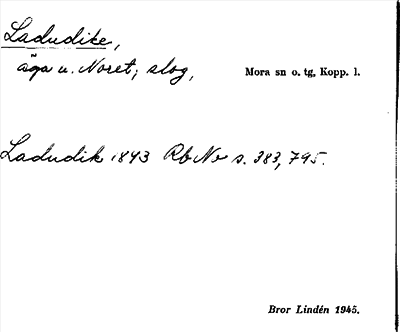 Ladudike,
äga u. Noret; slog, Mora sn o. tg, Kopp. l.
Ladudik 1843 Rb Nr s. 383, 795.
Bror Lindén 1945.